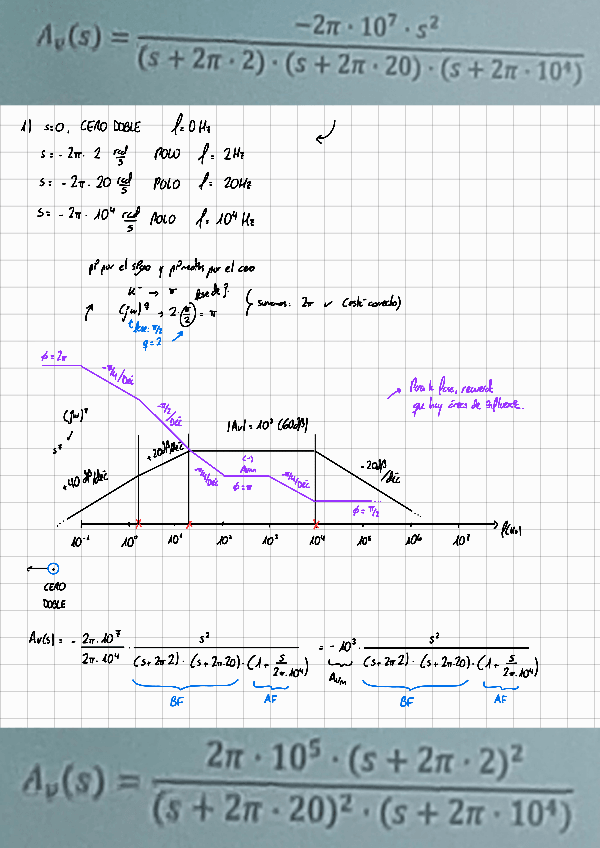 A_v(s) = −2π · 10⁷ · s² / (s + 2π · 2) · (s + 2π · 20) · (s + 2π · 10⁴)
1) s=0, CERO DOBLE f=0Hz
s = - 2π · 2 rad/s POLO f = 2Hz
s = - 2π · 20 rad/s POLO f = 20Hz
s = - 2π · 10⁴ rad/s POLO f = 10⁴ Hz
por el signo y por el cero
K⁻ → π fase de
(jω)^q → 2·(π/2) = π { sumamos: 2π ✓ (está correcto)
fase: π/2
q=2
ϕ=2π
-π/4/Déc
-π/2/Déc
Para la fase, recuerda
que hay áreas de influencia.
(jω)^q
s²
|Av| = 10³ (60dB)
+40 dB/Déc
+20dB/Déc
-π/4/Déc
(-)
ϕ=π
-π/4/Déc
-20dB/Déc
ϕ=π/2
10⁻¹ 10⁰ 10¹ 10² 10³ 10⁴ 10⁵ 10⁶ 10⁷ f(Hz)
CERO
DOBLE
Av(s) = - 2π·10⁷ / 2π·10⁴ · s² / (s+2π2)·(s+2π·20)·(1+ s/2π·10⁴) = -10³ · s² / (s+2π2)·(s+2π·20)·(1+ s/2π·10⁴)
BF AF A_vm BF AF
A_v(s) = 2π · 10⁵ · (s + 2π · 2)² / (s + 2π · 20)² · (s + 2π · 10⁴)